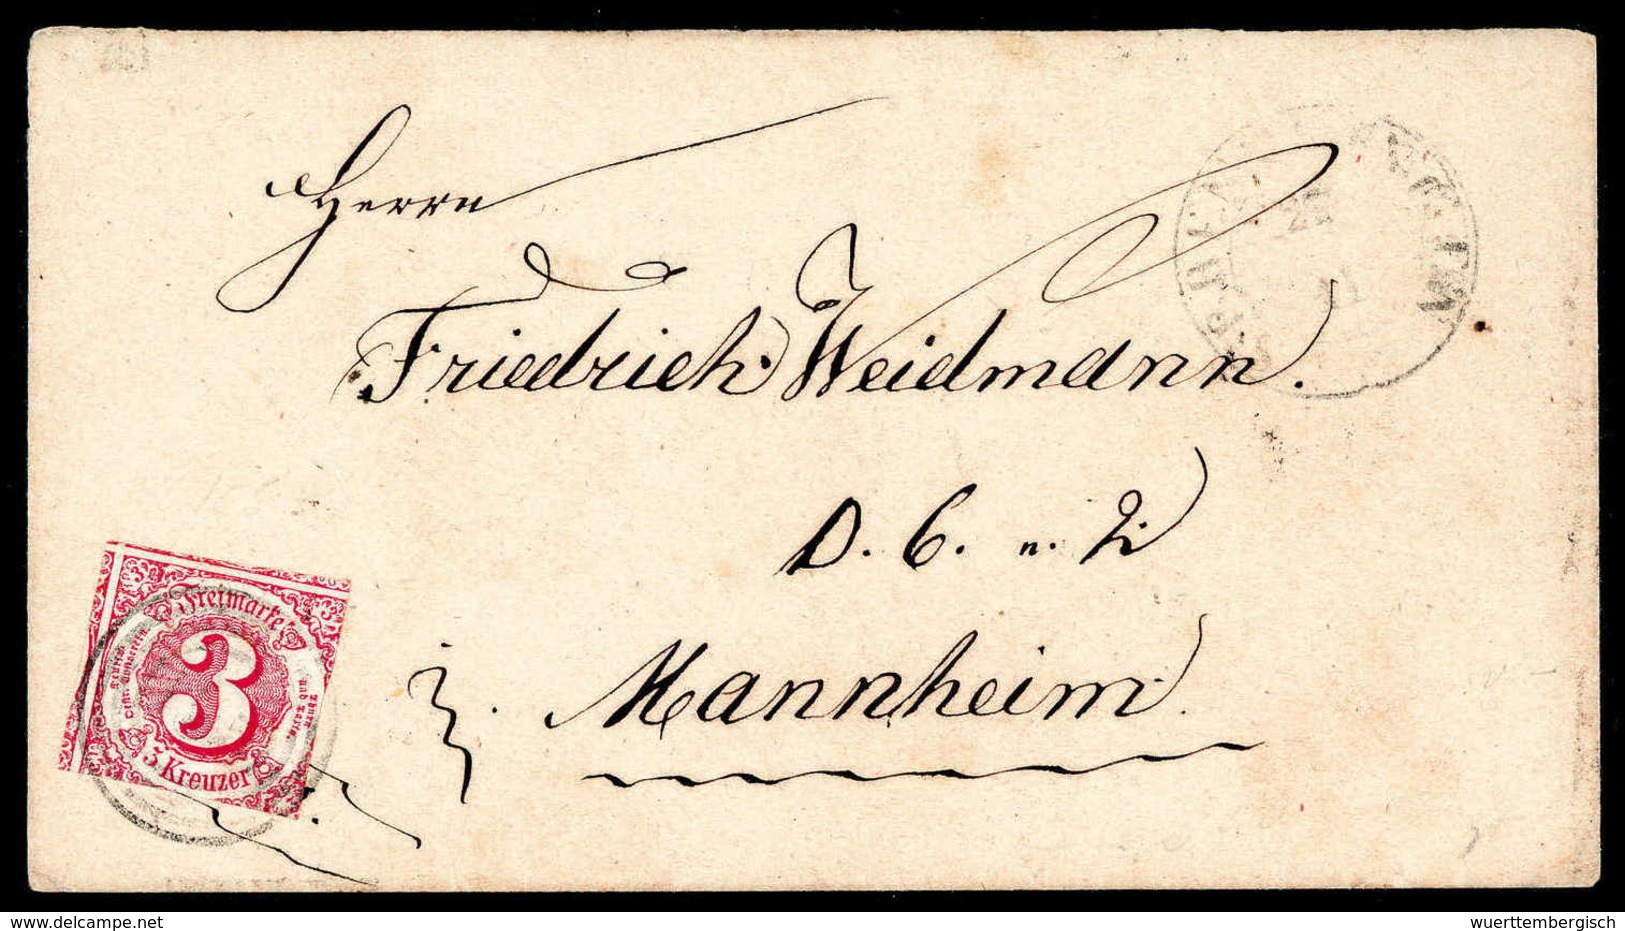 Herrn
Friedrich Weidmann.
D. 6. n. 2
Mannheim.
Freimarke
3
3 Kreuzer
delcampe.net
wuerttembergisch